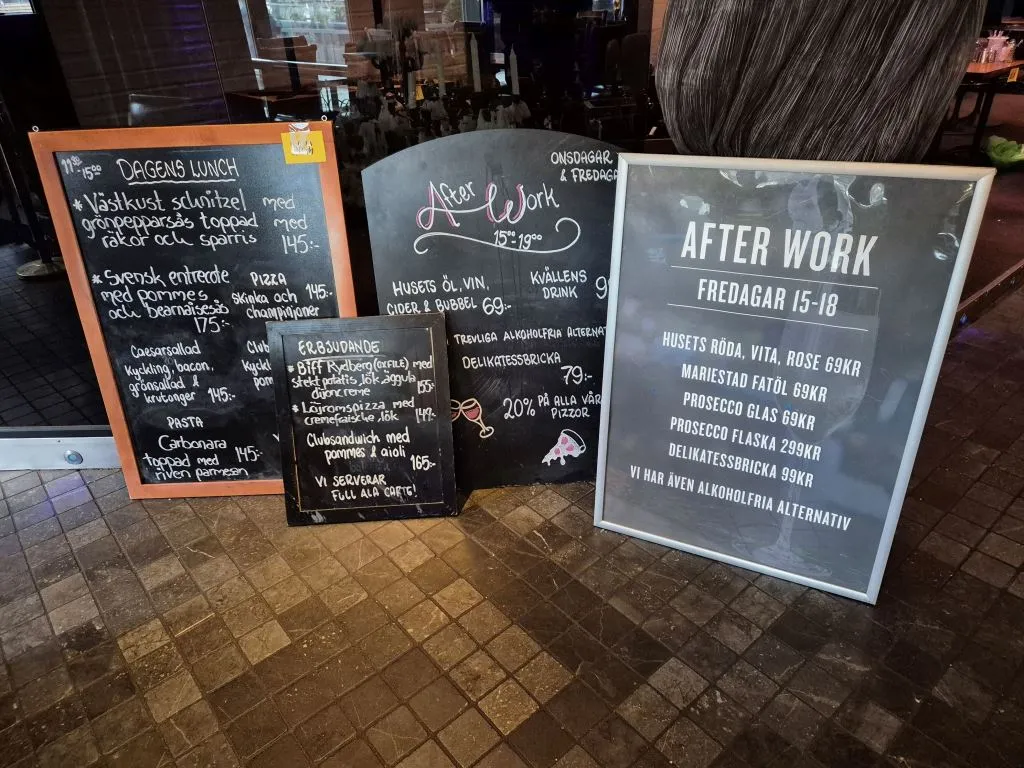 11³⁰-15⁰⁰
DAGENS LUNCH
* Västkust schnitzel med
grönpepparsås toppad med
räkor och sparris 145:-
* Svensk entrecote
med pommes
och bearnaisesås
175:-
PIZZA
skinka och 145:-
champinjoner
Caesarsallad
kyckling, bacon,
grönsallad &
krutonger 145:-
Club
kyckl
pom
PASTA
Carbonara
toppad med 145:-
riven parmesan
ERBJUDANDE
* Biff Rydberg (oxfilé) med
stekt potatis, lök, äggula
dijoncreme 155:-
* Löjromspizza med
cremefraiche, lök 149:-
Clubsandwich med
pommes & aioli 165:-
VI SERVERAR
FULL ALA CARTE!
ONSDAGAR
& FREDAGA
After Work
15⁰⁰-19⁰⁰
HUSETS ÖL, VIN,
CIDER & BUBBEL 69:-
KVÄLLENS
DRINK 9
TREVLIGA ALKOHOLFRIA ALTERNAT
DELIKATESSBRICKA
79:-
20% PÅ ALLA VÅR
PIZZOR
AFTER WORK
FREDAGAR 15-18
HUSETS RÖDA, VITA, ROSE 69KR
MARIESTAD FATÖL 69KR
PROSECCO GLAS 69KR
PROSECCO FLASKA 299KR
DELIKATESSBRICKA 99KR
VI HAR ÄVEN ALKOHOLFRIA ALTERNATIV